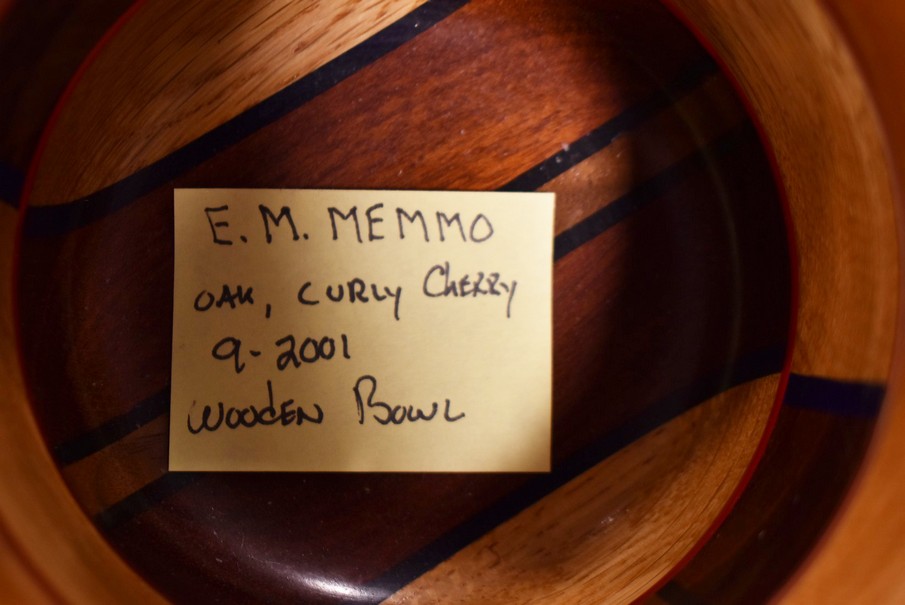 E. M. MEMMO
OAK, CURLY CHERRY
9-2001
WOODEN BOWL